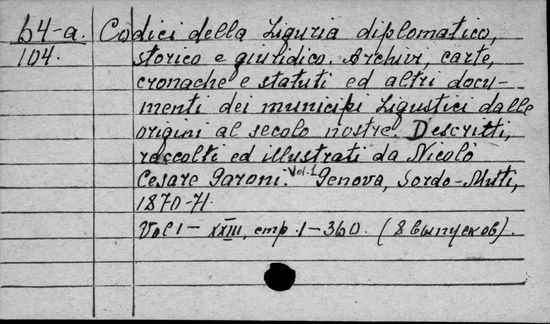 64-a. Codici della Liguria diplomatico,
104. storico e giuridico. Archivi, carte,
cronache e statuti ed altri docu-
menti dei municipi Ligustici dalle
origini al secolo nostre. Descritti,
raccolti ed illustrati da Nicolò
Cesare Garoni. Vol. 1 Genova, Sordo-Muti,
1870-71.
Vol I – XXIII, стр. 1–360. (8 выпусков).